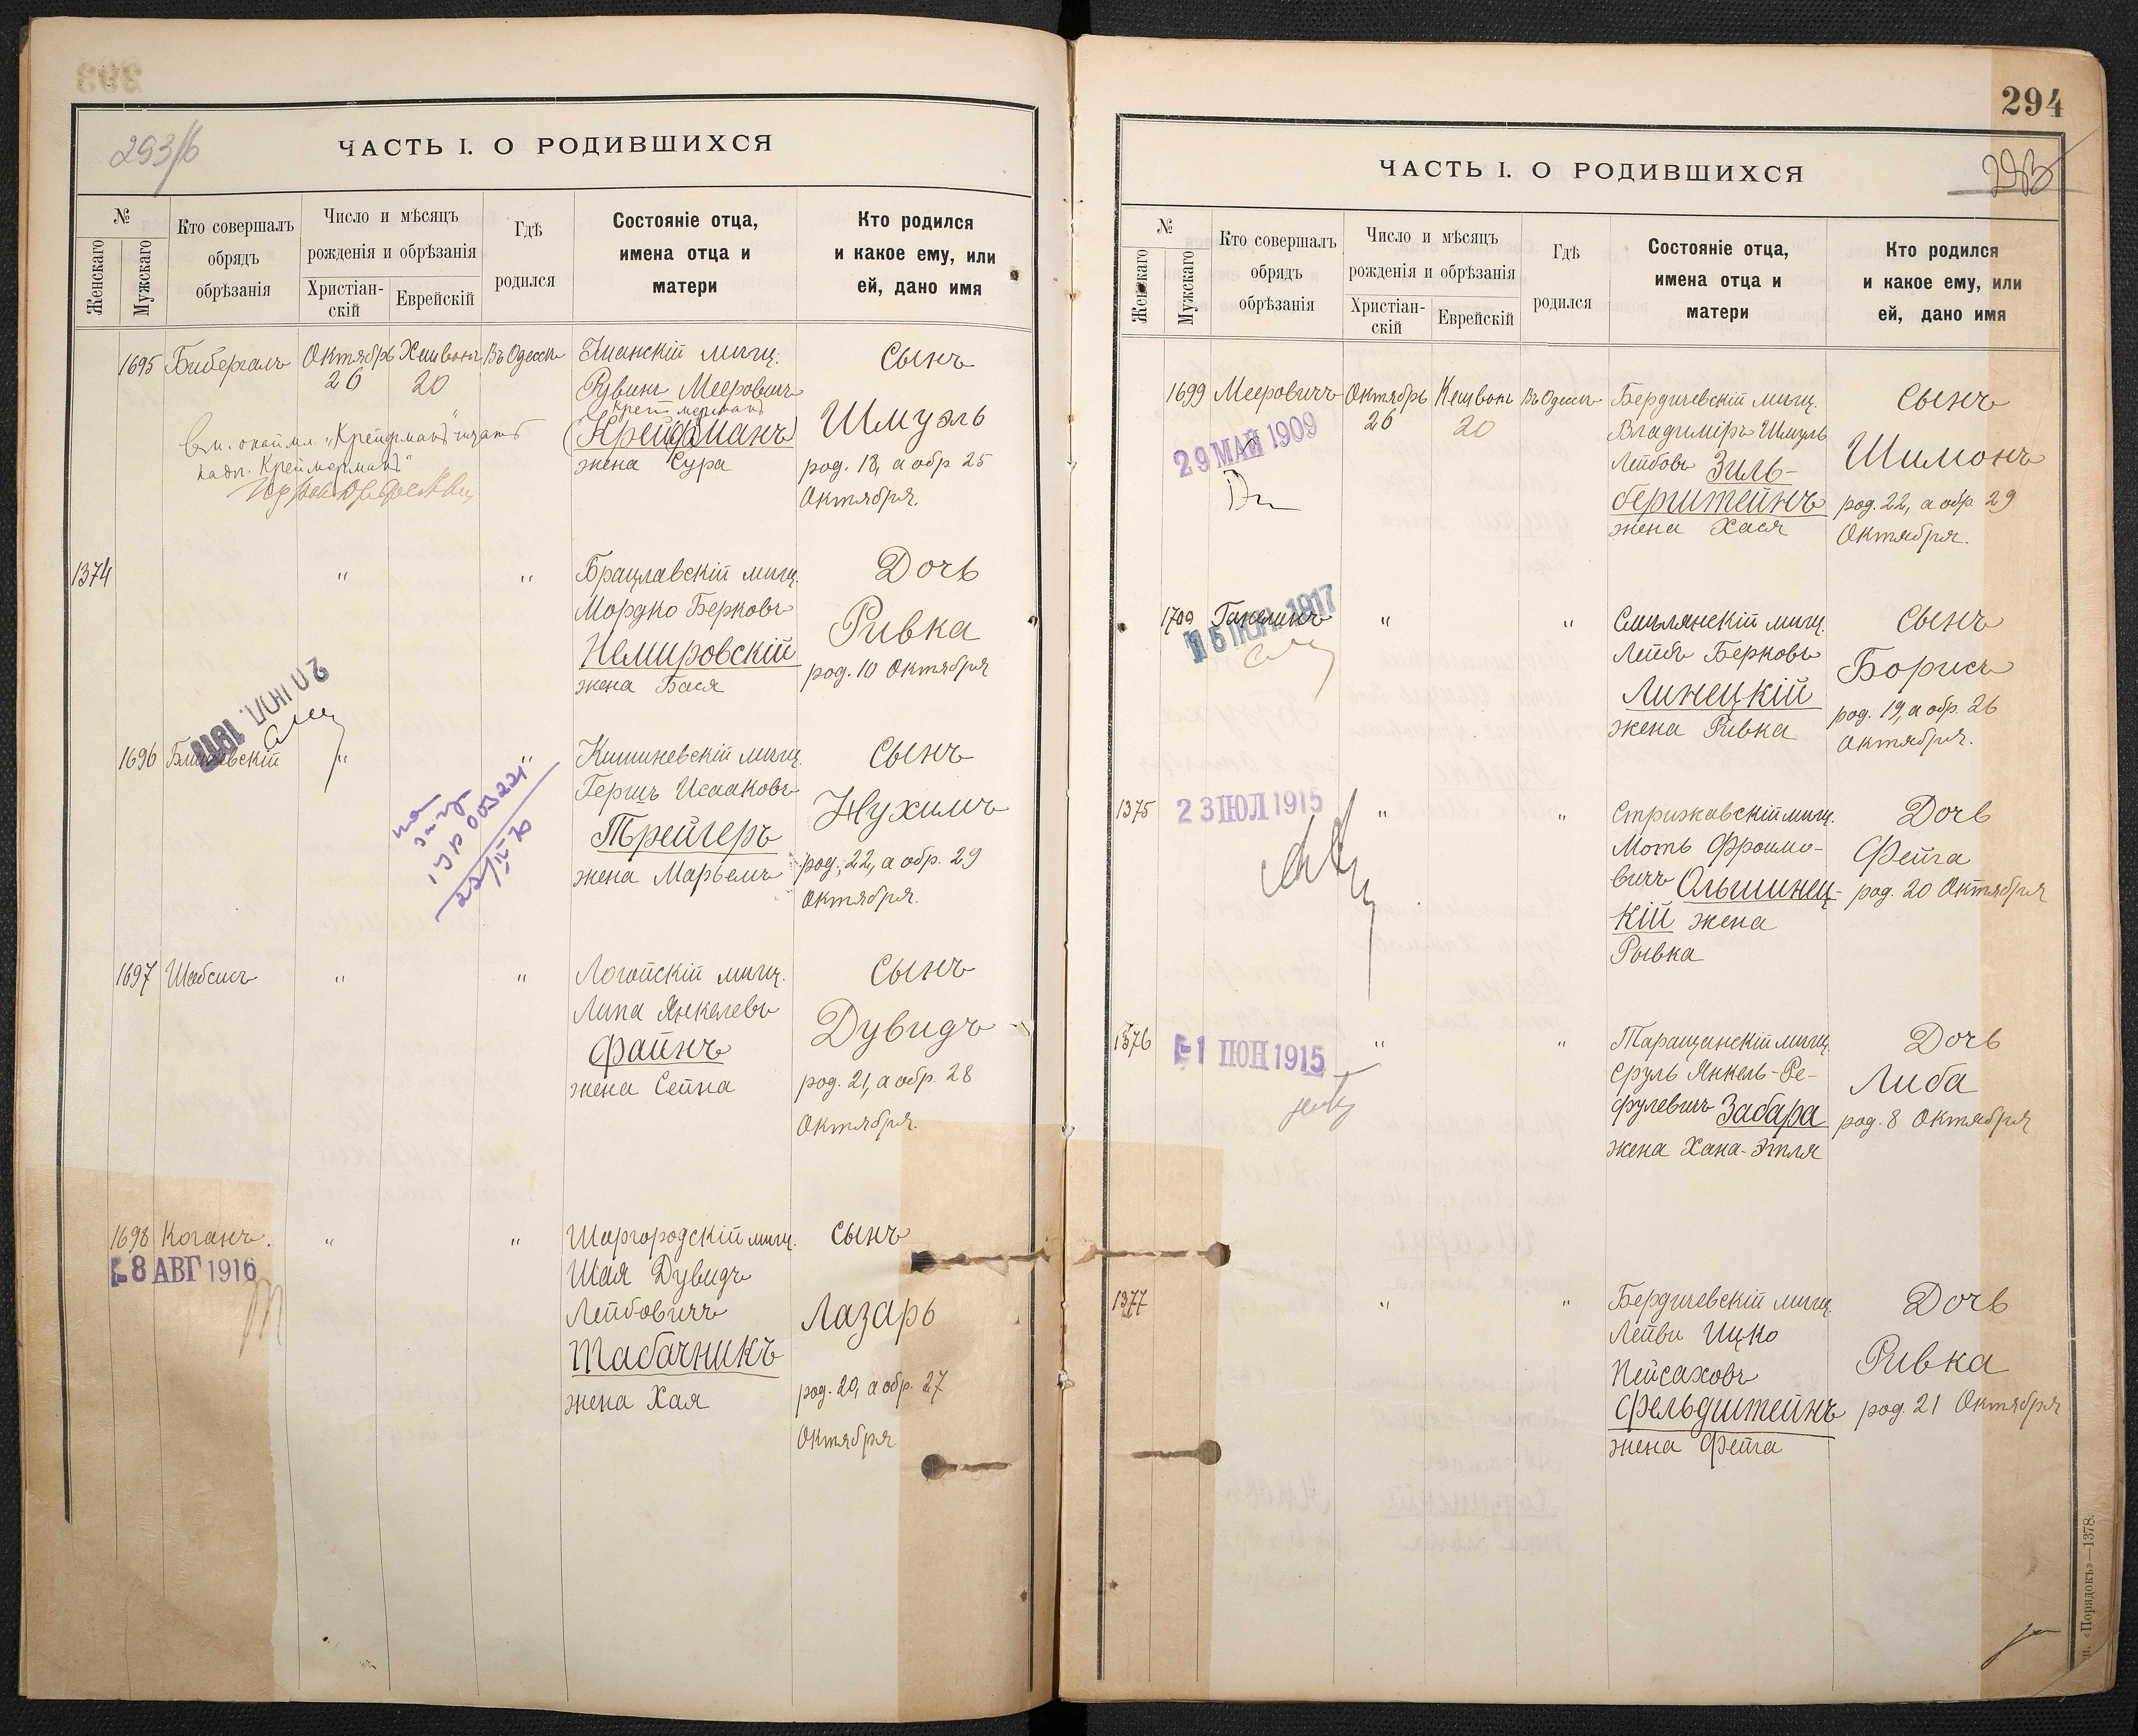 293/б
ЧАСТЬ I. О РОДИВШИХСЯ
№
Женскаго
Мужскаго
Кто совершалъ
обрядъ
обрѣзанія
Число и мѣсяцъ
рожденія и обрѣзанія
Христіан-
скій
Еврейскій
Гдѣ
родился
Состояніе отца,
имена отца и
матери
Кто родился
и какое ему, или
ей, дано имя
1695 Бибергалъ Октябрь Хешвонъ Въ Одессѣ
26 20
Рувинъ Мееровичъ
Креймерманъ
(Крейдманъ)
жена Сура
Сынъ
Шмуэль
род. 18, а обр. 25
Октября.
"Крейдманъ" читать
"Креймерманъ"
1374 " "
Брацлавскій мѣщ.
Мордко Берковъ
Немировскій
жена Бася
Дочь
Ривка
род. 10 Октября
20 ІЮЛ.
1696 " "
Кишиневскій мѣщ.
Гершъ Исааковъ
Трейгеръ
жена Марьемъ
Сынъ
Нухимъ
род. 22, а обр. 29
Октября.
1697 Шабсисъ " "
Логойскій мѣщ.
Липа Янкелевъ
Файнъ
жена Сейна
Сынъ
Дувидъ
род. 21, а обр. 28
Октября.
1698 Коганъ. " "
8 АВГ 1916
Шаргородскій мѣщ.
Шая Дувидъ
Лейбовичъ
Табачникъ
жена Хая
Сынъ
Лазарь
род. 20, а обр. 27
Октября
294
293
ЧАСТЬ I. О РОДИВШИХСЯ
№
Женскаго
Мужскаго
Кто совершалъ
обрядъ
обрѣзанія
Число и мѣсяцъ
рожденія и обрѣзанія
Христіан-
скій
Еврейскій
Гдѣ
родился
Состояніе отца,
имена отца и
матери
Кто родился
и какое ему, или
ей, дано имя
1699 Мееровичъ Октябрь Хешвонъ Въ Одессѣ
26 20
29 МАЙ 1909
Бердичевскій мѣщ.
Владиміръ Шмуль
Лейбовъ Зиль-
берштейнъ
жена Хася
Сынъ
Шимонъ
род. 22, а обр. 29
Октября.
1700 Ганелинъ " "
1917
Смилянскій мѣщ.
Лейбъ Берковъ
Линецкій
жена Ривка
Сынъ
Борисъ
род. 19, а обр. 26
Октября.
1375 " "
23 ІЮЛ 1915
Стрижавскій мѣщ.
Моть Фроимо-
вичъ Ольшинец-
кій жена
Рывка
Дочь
Фейга
род. 20 Октября
1376 " "
1 ІЮН 1915
Таращанскій мѣщ.
Сруль Янкель-Ре-
фулевичъ Забара
жена Хана-Этля
Дочь
Либа
род. 8 Октября
1377 " "
Бердичевскій мѣщ.
Лейви Ицко
Пейсаховъ
Фельдштейнъ
жена Фейга
Дочь
Ривка
род. 21 Октября
«Порядокъ»—1378.